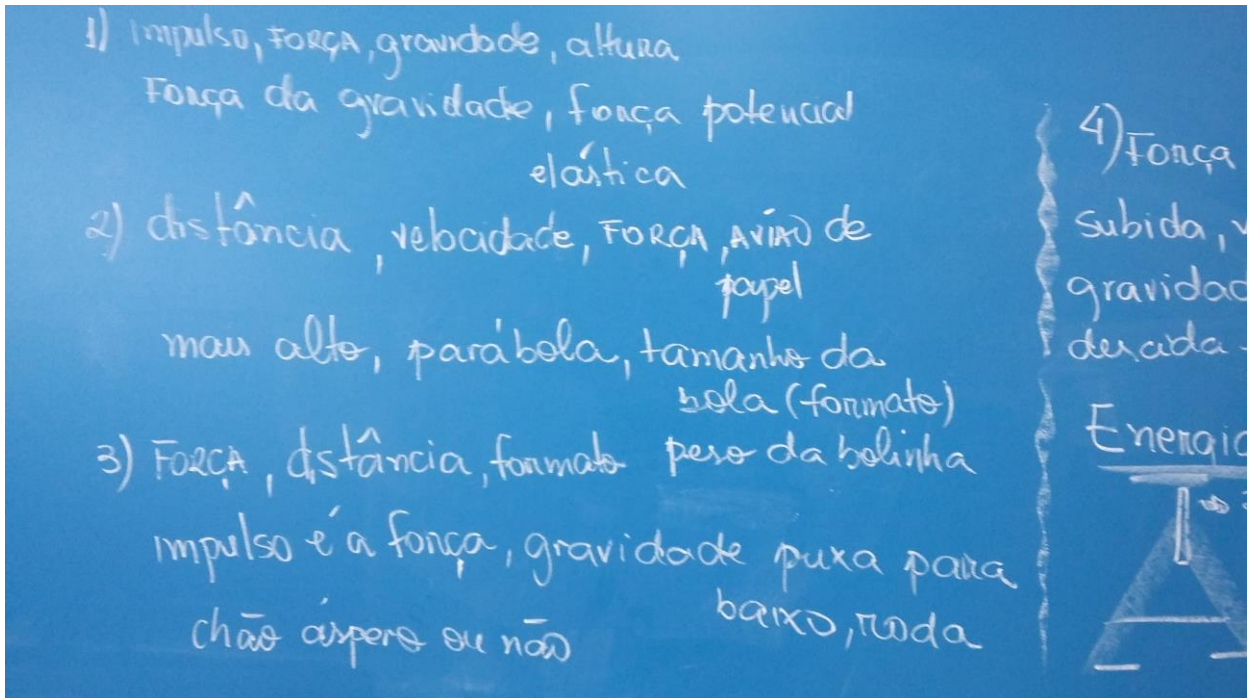 1) Impulso, FORÇA, gravidade, altura
Força da gravidade, força potencial
elástica
2) distância, velocidade, FORÇA, AVIÃO de
papel
mais alto, parábola, tamanho da
bola (formato)
3) FORÇA, distância, formato peso da bolinha
impulso é a força, gravidade puxa para
baixo, roda
chão áspero ou não
4) Força
subida, v
gravidad
descida
Energia